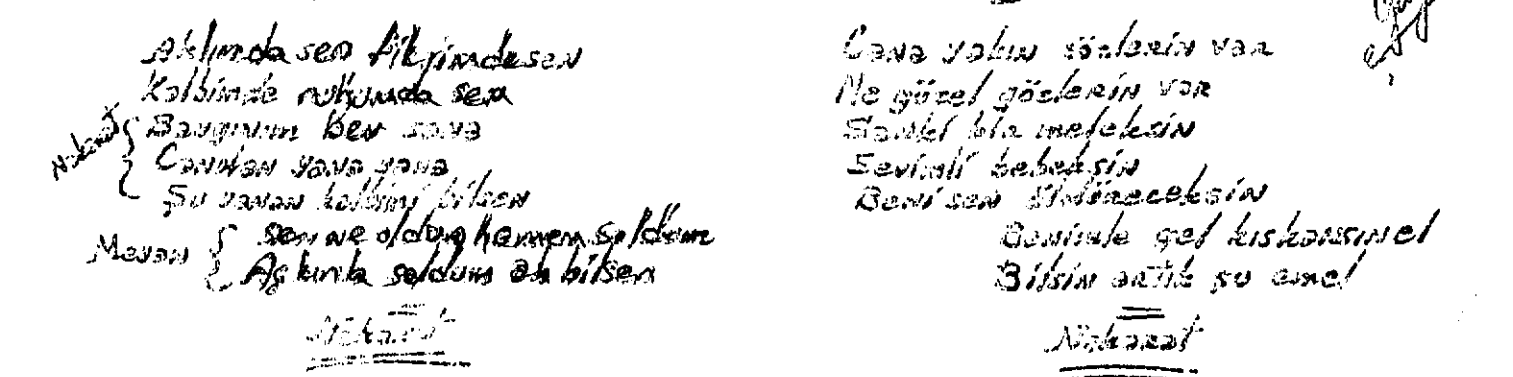 Aklımda sen fikrimdesen
Kalbimde ruhumda sen
Nakarat { Baygınım ben sana
Candan yana yana
Şu yanan kalbimi bilsen
Meyan { sen ne oldun hemen soldum
Aşkınla soldum ah bilsen
Nakarat
Cana yakın sözlerin var
Ne güzel gözlerin var
Sanki bir meleksin
Sevimli bebeksin
Beni sen öldüreceksin
Benimle gel kıskansın el
Bilsin artık şu emel
Nakarat